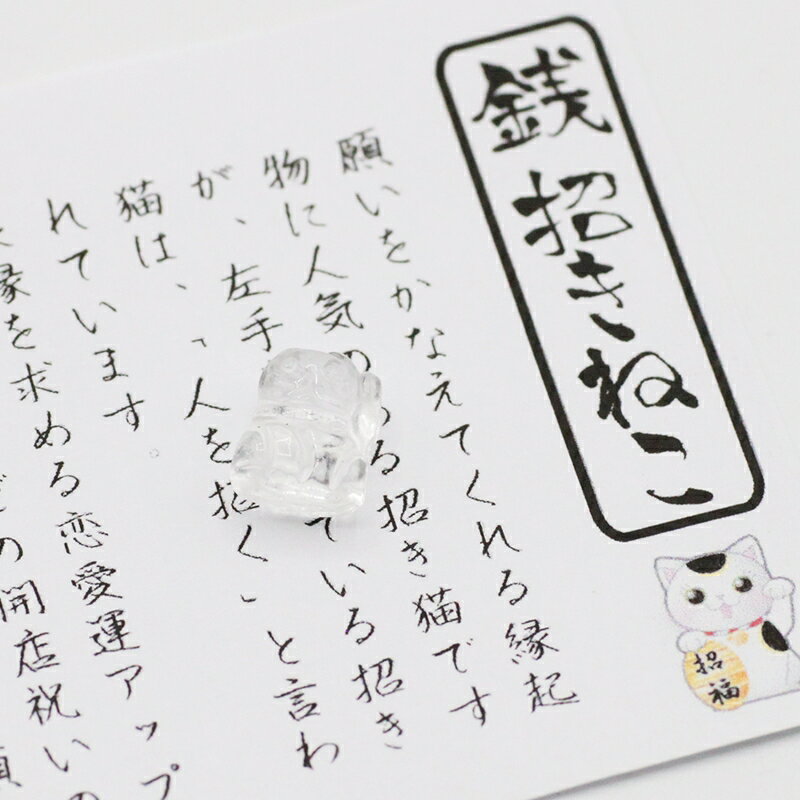 銭招きねこ
願いをかなえてくれる縁起
物に人気の る招き猫です
が、左手 ている招き
猫は、「人を招く」と言わ
れています
縁を求める恋愛運アップ
の開店祝いの
招福